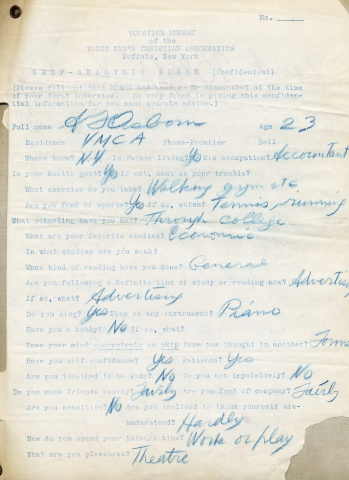 No.
VOCATION BUREAU
of the
YOUNG MEN'S CHRISTIAN ASSOCIATION
Buffalo, New York
SELF-ANALYSIS BLANK (Confidential)
(Please fill out this blank and hand to Mr. at the time
of your first interview. be very frank in giving this confiden-
tial information for you want accurate advice.)
Full name A F Osborn Age 23
Residence YMCA Phone-Frontier Bell
Where born? N.Y. Is father living? Yes His occupation? Accountant
Is your health good? Yes if not, what is your trouble?
What exercise do you take? Walking gym etc
Are you fond of sports? Yes if so, which? Tennis, running
What schooling have you had? Through college
What are your favorite studies? Economic
In what studies are you weak?
What kind of reading have you done? General
Are you following a definite line of study or reading now? Advertising
If so, what? Advertising
Do you sing? Yes Play on any instrument? Piano
Have you a hobby? No If so, what?
Does your mind concentrate or skip from one thought to another?
Have you self confidence? Yes Patience? Yes
Are you inclined to be No Do you act impulsively? No
Do you make friends easily? Fairly Are you fond of company? Fairly
Are you sensitive? No Are you inclined to think yourself mis-
understood? Hardly
How do you spend your leisure time? Work or play
What are you pleasures? Theatre